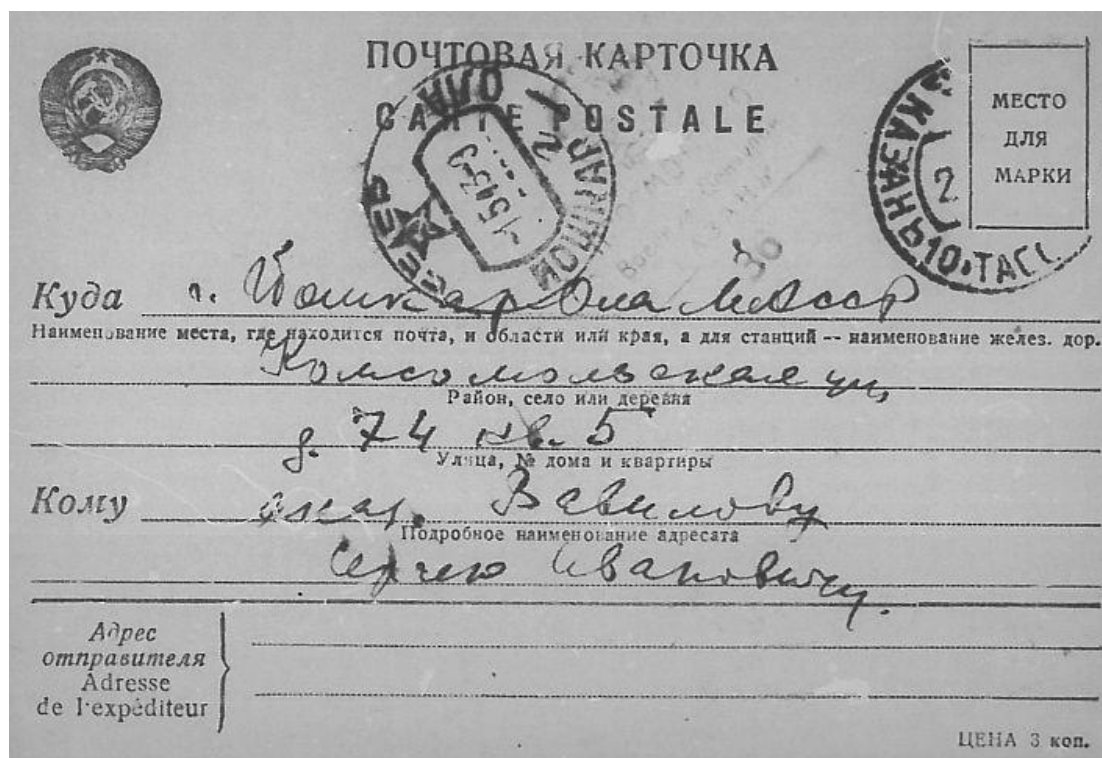 ПОЧТОВАЯ КАРТОЧКА
CARTE POSTALE
МЕСТО
ДЛЯ
МАРКИ
ЙОШКАР ОЛА
1 5 43-9
КАЗАНЬ 10 ТАСС
2
30
Куда г. Йошкар Ола МАССР
Наименование места, где находится почта, и области или края, а для станций -- наименование желез. дор.
Комсомольская ул,
Район, село или деревня
д. 74 кв. 5
Улица, № дома и квартиры
Кому акад. Вавилову
Подробное наименование адресата
Сергею Ивановичу.
Адрес
отправителя
Adresse
de l'expéditeur
ЦЕНА 3 коп.